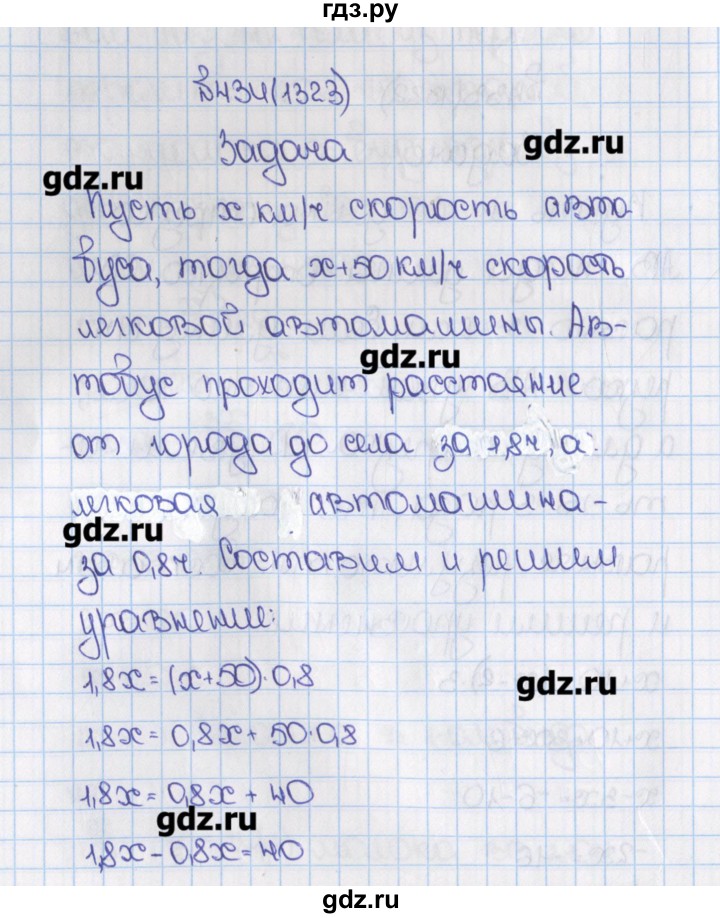 гдз.ру
В434(1323)
Задача
gdz.ru
gdz.ru
Пусть x км/ч скорость авто-
буса, тогда x+50 км/ч скорость
легковой автомашины. Ав-
gdz.ru
тобус проходит расстояние
от города до села за 1,8ч, а
легковая автомашина -
gdz.ru
за 0,8ч. Составим и решим
уравнение:
1,8x = (x+50)·0,8
gdz.ru
1,8x = 0,8x + 50·0,8
1,8x = 0,8x + 40
gdz.ru
1,8x - 0,8x = 40
gdz.ru